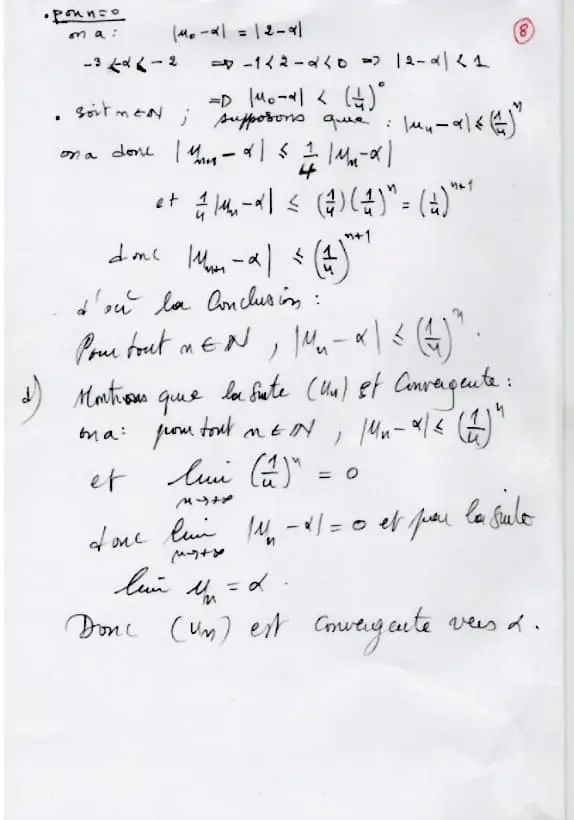 . pour n=0
8
on a : |u₀-α| = |2-α|
-3 < -α < -2 ⇒ -1 < 2-α < 0 ⇒ |2-α| < 1
⇒ |u₀-α| < (1/4)⁰
. soit n ∈ ℕ ; supposons que : |uₙ-α| ≤ (1/4)ⁿ
on a donc |uₙ₊₁-α| ≤ 1/4 |uₙ-α|
et 1/4 |uₙ-α| ≤ (1/4)(1/4)ⁿ = (1/4)ⁿ⁺¹
donc |uₙ₊₁-α| ≤ (1/4)ⁿ⁺¹
d'où la Conclusion :
Pour tout n ∈ ℕ, |uₙ-α| ≤ (1/4)ⁿ.
d) Montrons que la suite (uₙ) est Convergente :
on a : pour tout n ∈ ℕ, |uₙ-α| ≤ (1/4)ⁿ
et lim (1/4)ⁿ = 0
n→+∞
donc lim |uₙ-α| = 0 et par la suite
n→+∞
lim uₙ = α.
Donc (uₙ) est Convergente vers α.